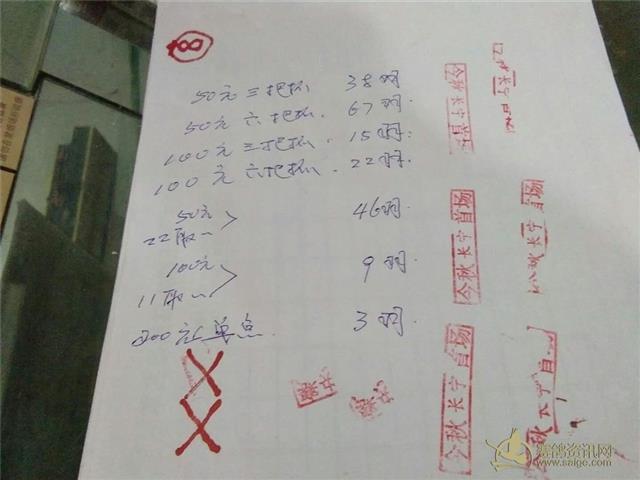 8
50元三把抓 38羽
50元六把抓. 67羽.
100元三把抓. 15羽.
100元六把抓. 22羽.
50元
22取一 46羽.
100元
11取一 9羽.
200元单点. 3羽.
今秋长宁 首场
今秋长宁 首场
秋长宁首
赛鸽资讯网
www.saige.com